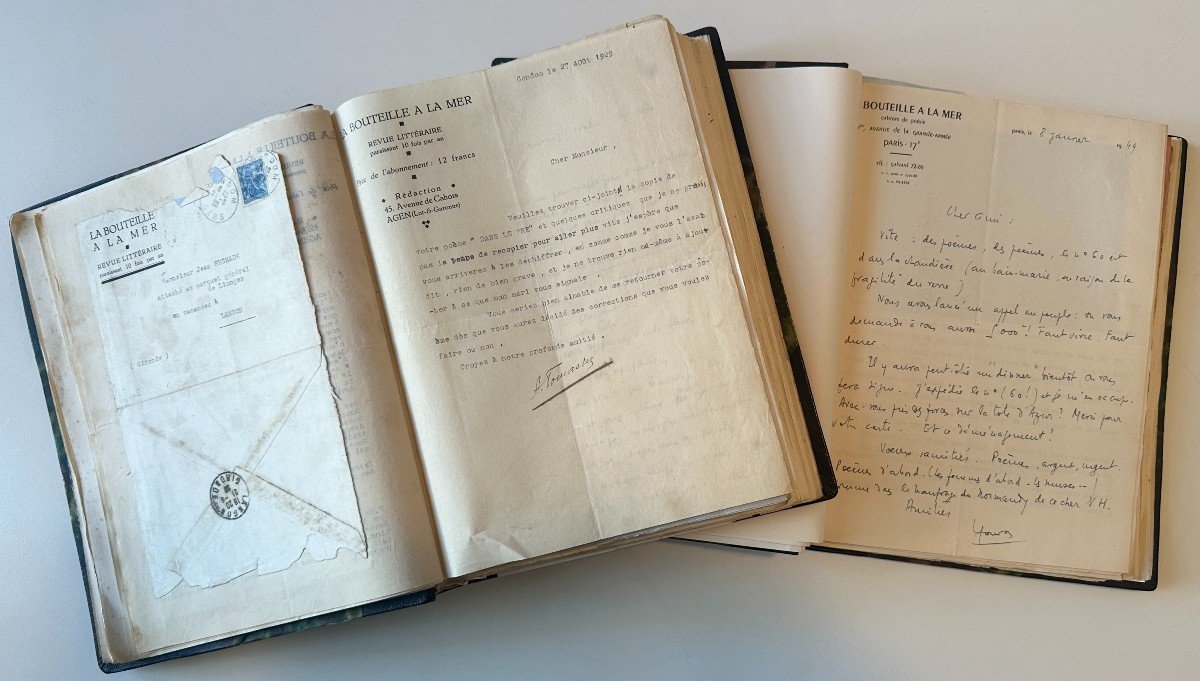 LA BOUTEILLE
A LA MER
REVUE LITTÉRAIRE
paraissant 10 fois par an
Monsieur Jean
attaché au parquet général
de Limoges
en vacances à
LANGON
( Gironde )
LA BOUTEILLE A LA MER
REVUE LITTÉRAIRE
paraissant 10 fois par an
Prix de l'abonnement : 12 francs
Rédaction
45, Avenue de Cahors
AGEN (Lot-&-Garonne)
le 27 Août 1929
Cher Monsieur ,
Veuillez trouver ci-jointe la copie de
votre poème " DANS LE PRE" et quelques critiques que je ne prends
pas le temps de recopier pour aller plus vite, j'espère que
vous arriverez à les déchiffrer , en somme comme je vous l'avait
dit , rien de bien grave , et je ne trouve rien mê-même à ajou-
-ter à ce que non mari vous signale .
Vous seriez bien aimable de me retourner votre po-
ème dès que vous aurez décidé des corrections que vous voulez
faire ou non .
Croyez à notre profonde amitié .
BOUTEILLE A LA MER
cahiers de poésie
AVENUE DE LA GRANDE-ARMÉE
PARIS-17e
PARIS, le 8 janvier 1949
Cher ami :
Vite : des poèmes, les poèmes, le n° 60 est
dans la chaudière (au bain-marie, en raison de la
fragilité du verre)
Nous avons lancé un appel au peuple : on vous
demande à vous aussi 5000 ! Faut vivre. Faut
durer.
Il y aura peut-être un "dîner" bientôt on vous
fera signe. J'expédie le n° (60!) et je m'en occupe.
Avez-vous pris des forces sur la Côte d'Azur ? Merci pour
votre carte. Et ce déménagement ?
Voeux, amitiés. Poèmes, argent, urgent.
Poèmes d'abord. (les femmes d'abord - les muses -- !
le naufrage du Normandy de ce cher V.H.
Amitiés